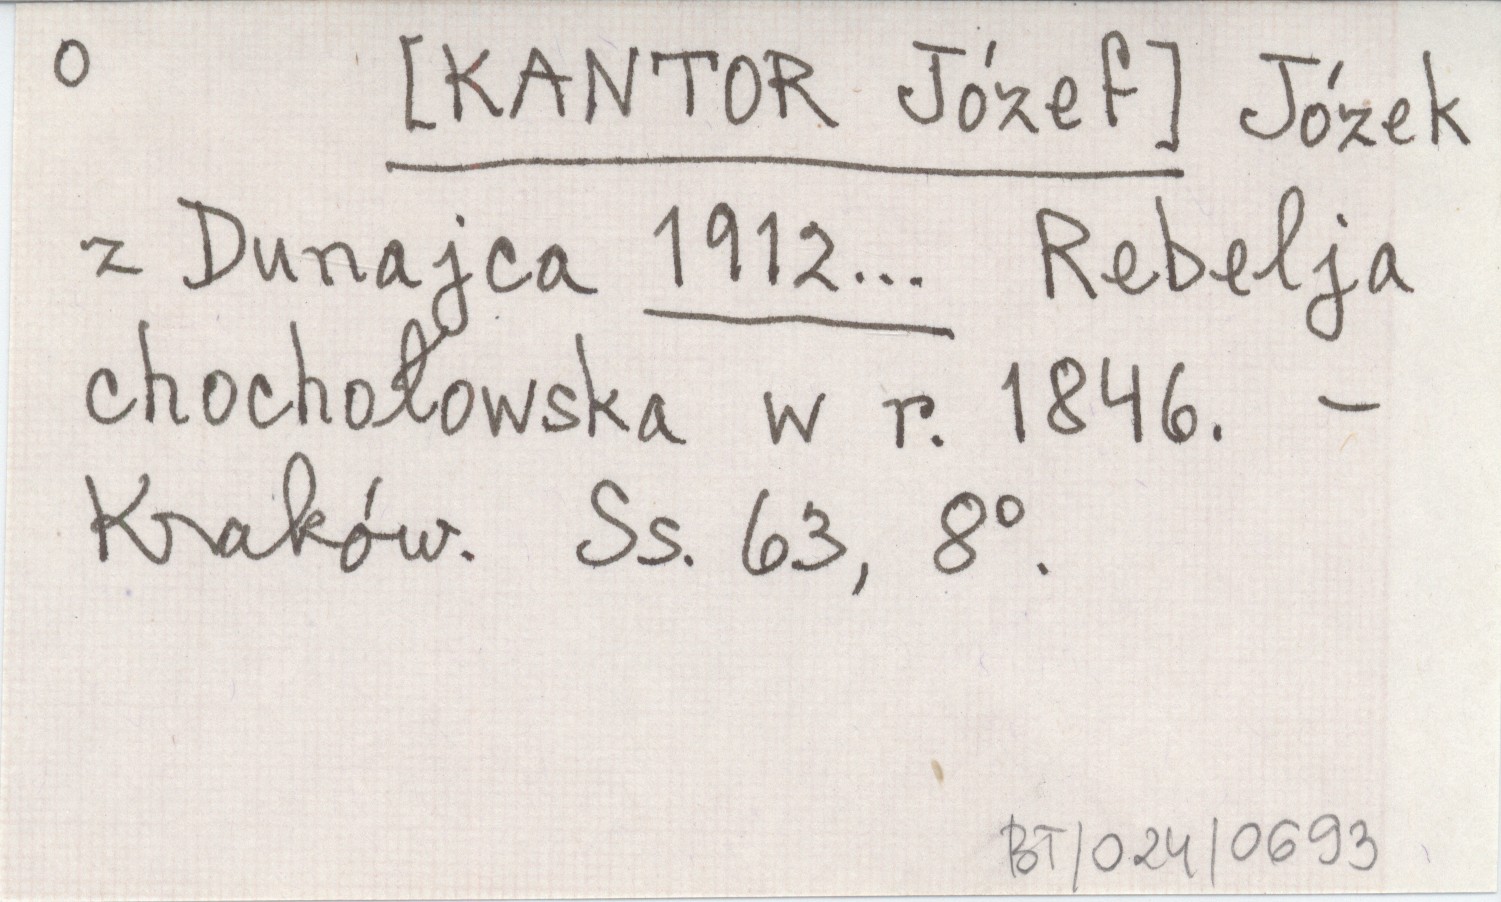 o [KANTOR Józef] Józek
z Dunajca 1912... Rebelja
chochołowska w r. 1846. –
Kraków. Ss. 63, 8º.
BT/024/0693